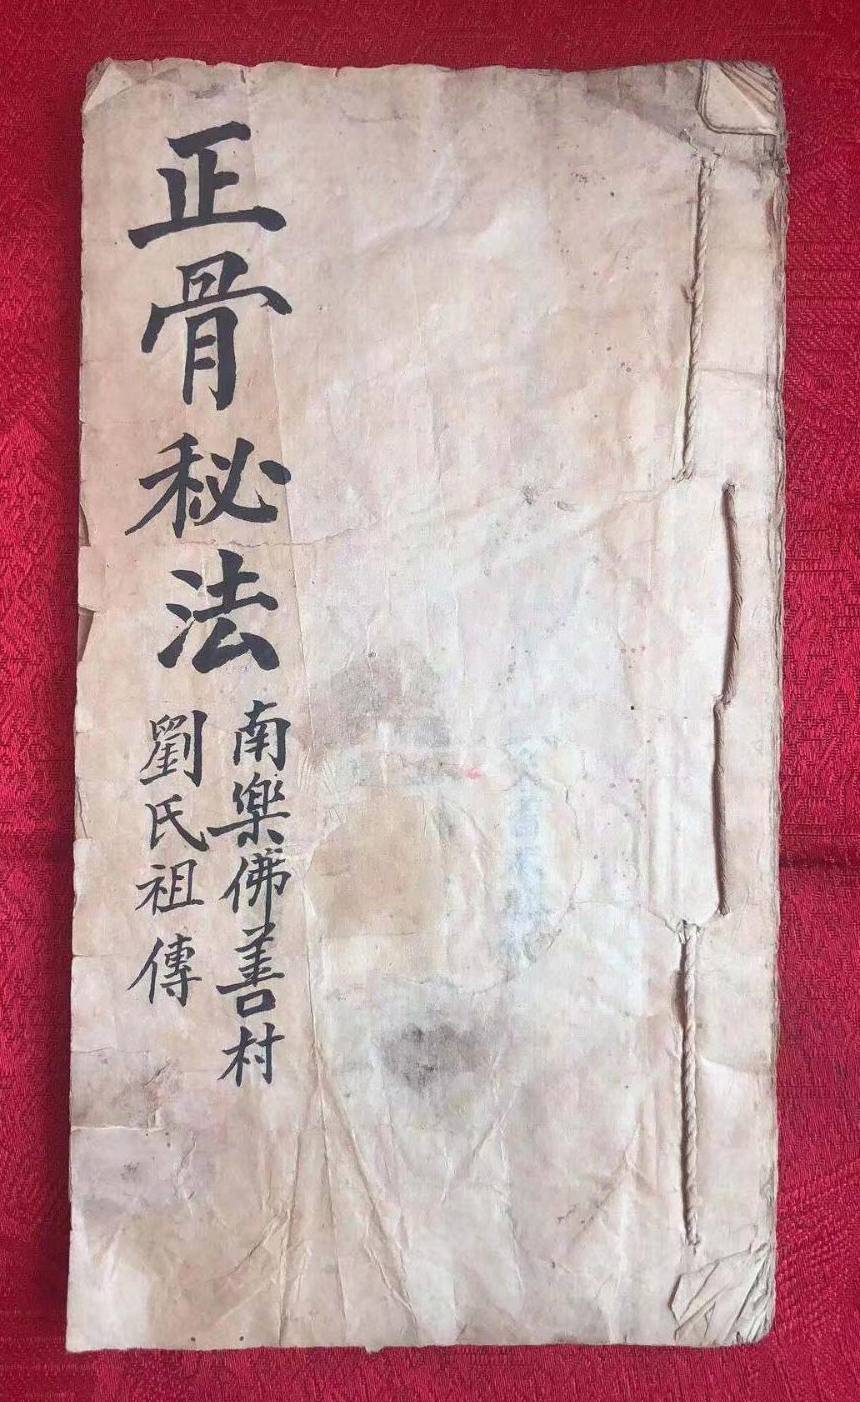 正骨秘法
南樂佛善村
劉氏祖傳